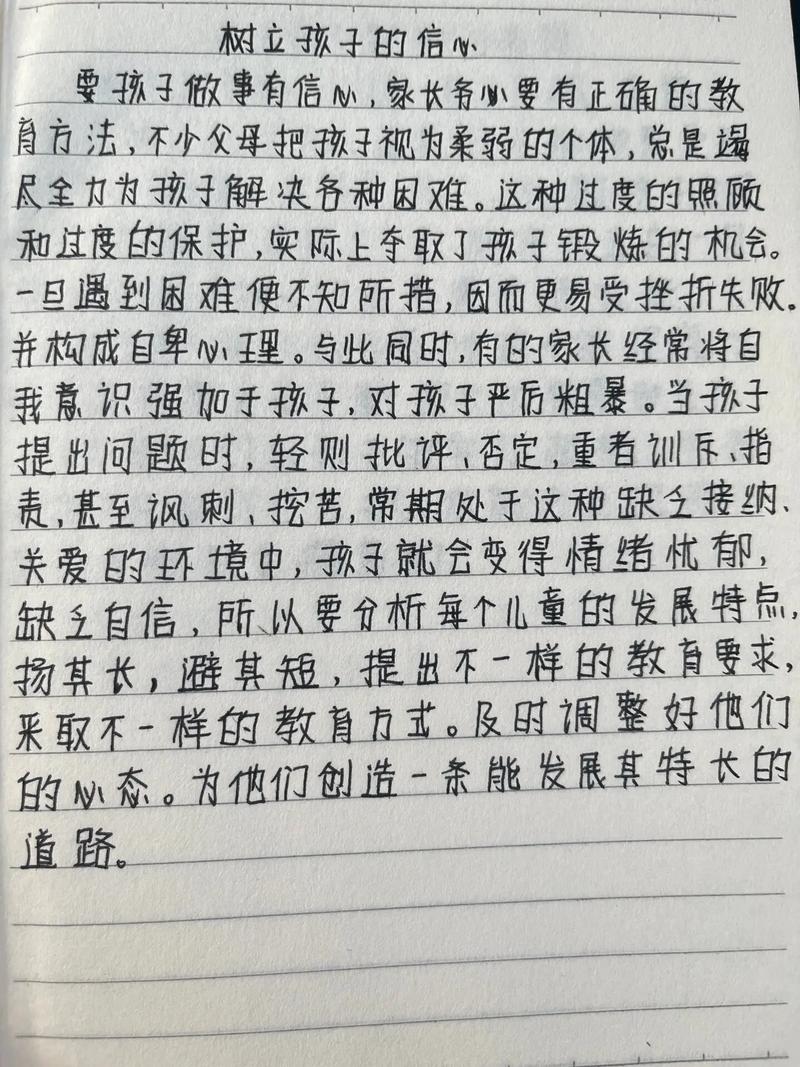 树立孩子的信心
要孩子做事有信心,家长务必要有正确的教
育方法,不少父母把孩子视为柔弱的个体,总是竭
尽全力为孩子解决各种困难。这种过度的照顾
和过度的保护,实际上夺取了孩子锻炼的机会。
一旦遇到困难便不知所措,因而更易受挫折失败。
并构成自卑心理。与此同时,有的家长经常将自
我意识强加于孩子,对孩子严厉粗暴。当孩子
提出问题时,轻则批评、否定,重者训斥、指
责,甚至讽刺、挖苦,常期处于这种缺乏接纳、
关爱的环境中,孩子就会变得情绪忧郁,
缺乏自信,所以要分析每个儿童的发展特点,
扬其长,避其短,提出不一样的教育要求,
采取不一样的教育方式。及时调整好他们
的心态。为他们创造一条能发展其特长的
道路。